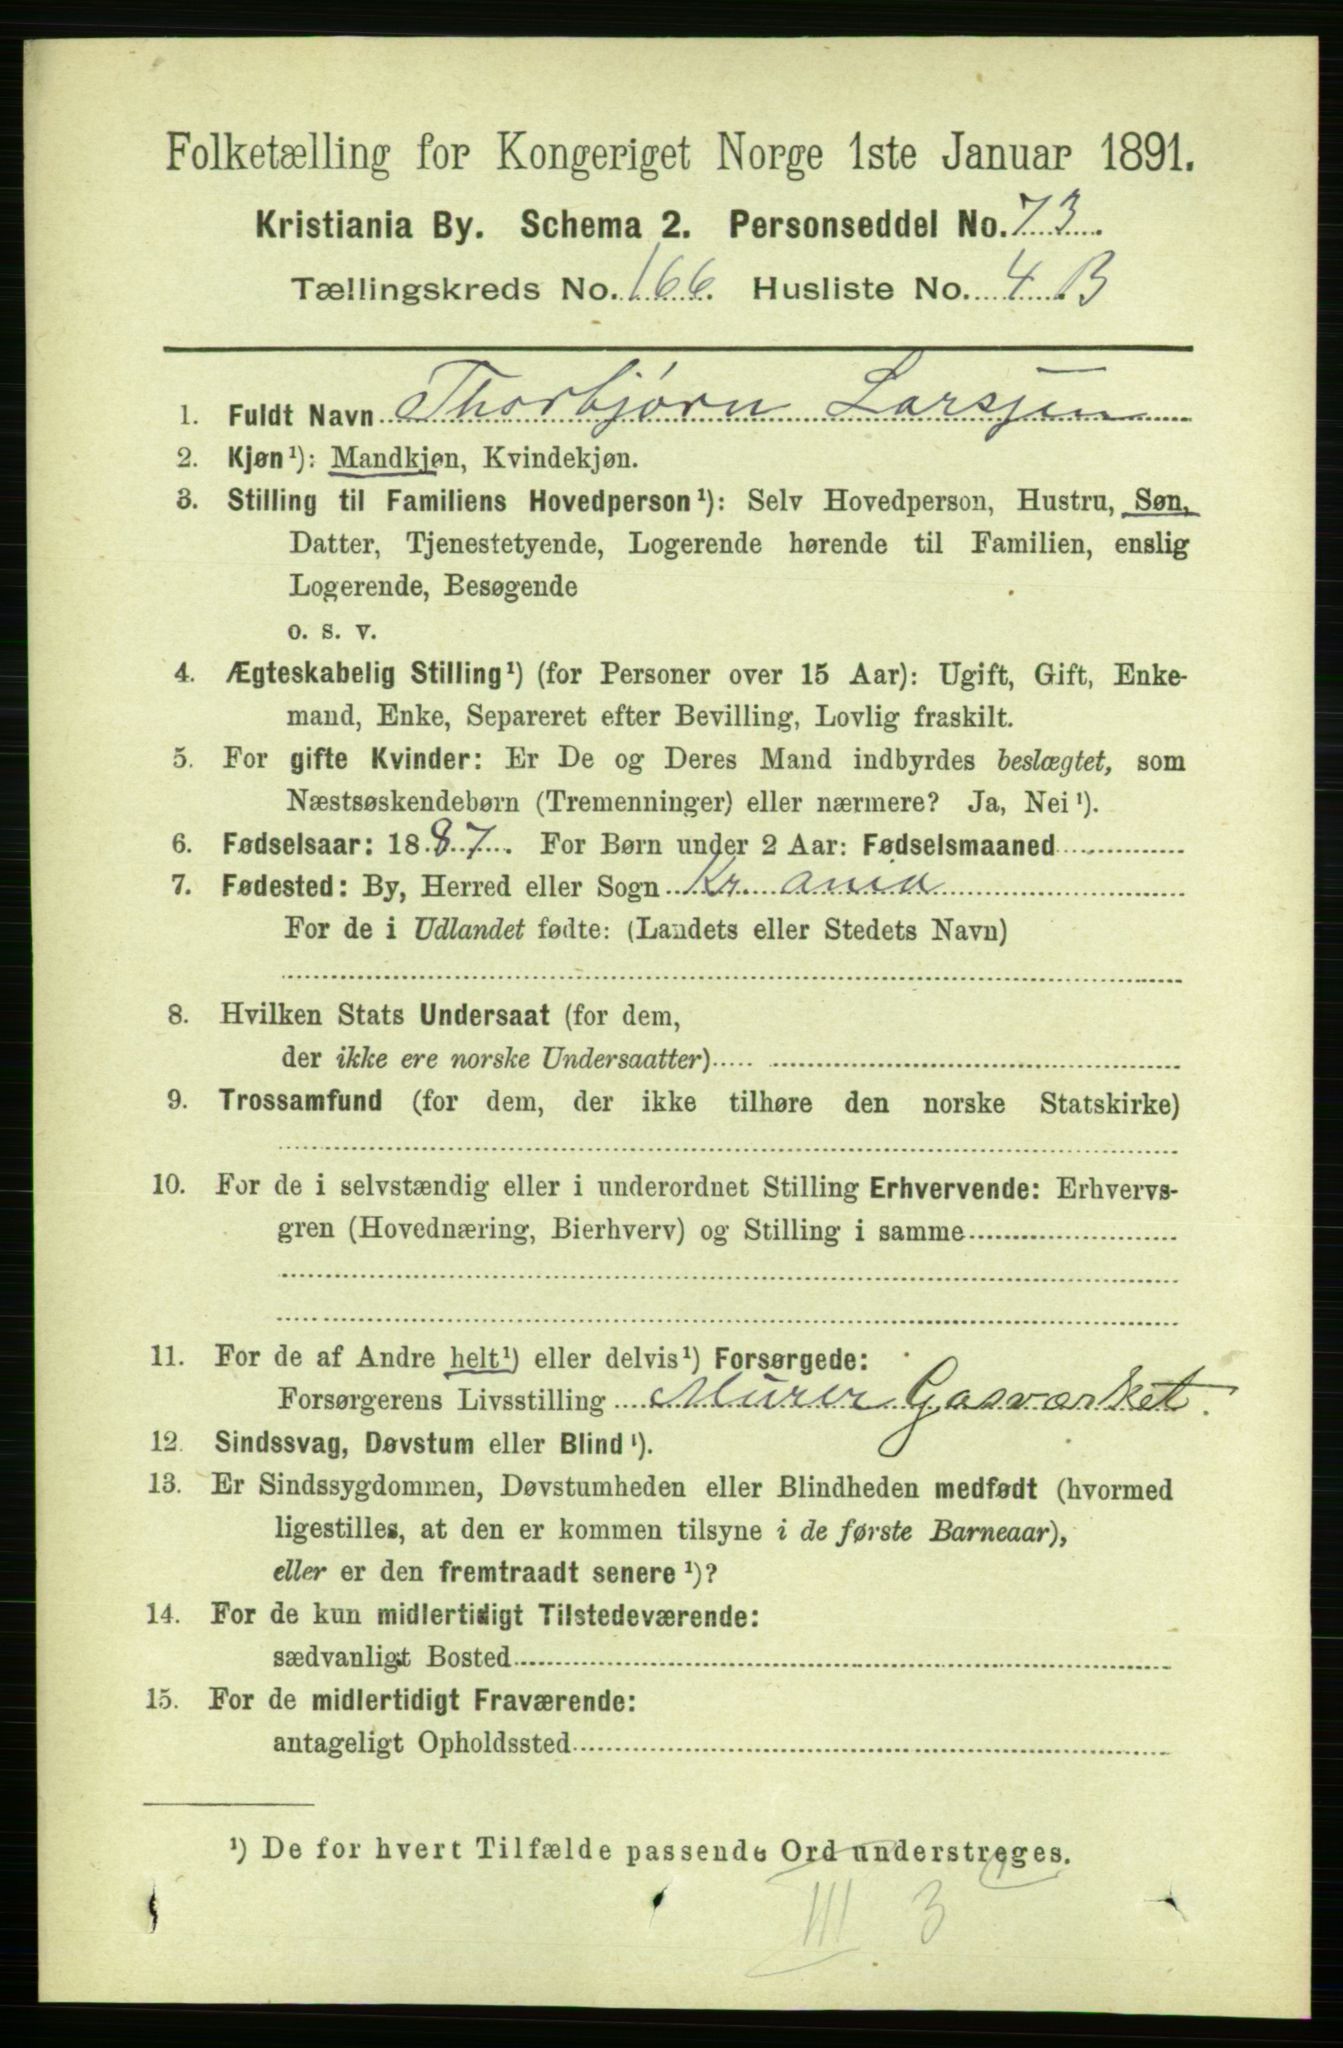 Folketælling for Kongeriget Norge 1ste Januar 1891.
Kristiania By. Schema 2. Personseddel No. 73.
Tællingskreds No. 166. Husliste No. 4 B
1. Fuldt Navn Thorbjørn Larsen
2. Kjøn¹): Mandkjøn, Kvindekjøn.
3. Stilling til Familiens Hovedperson¹): Selv Hovedperson, Hustru, Søn,
Datter, Tjenestetyende, Logerende hørende til Familien, enslig
Logerende, Besøgende
o. s. v.
4. Ægteskabelig Stilling¹) (for Personer over 15 Aar): Ugift, Gift, Enke-
mand, Enke, Separeret efter Bevilling, Lovlig fraskilt.
5. For gifte Kvinder: Er De og Deres Mand indbyrdes beslægtet, som
Næstsøskendebørn (Tremenninger) eller nærmere? Ja, Nei¹).
6. Fødselsaar: 1887. For Børn under 2 Aar: Fødselsmaaned
7. Fødested: By, Herred eller Sogn Kr. ania
For de i Udlandet fødte: (Landets eller Stedets Navn)
8. Hvilken Stats Undersaat (for dem,
der ikke ere norske Undersaatter)
9. Trossamfund (for dem, der ikke tilhøre den norske Statskirke)
10. For de i selvstændig eller i underordnet Stilling Erhvervende: Erhvervs-
gren (Hovednæring, Bierhverv) og Stilling i samme
11. For de af Andre helt¹) eller delvis¹) Forsørgede:
Forsørgerens Livsstilling Murer Gasværket.
12. Sindssvag, Døvstum eller Blind¹).
13. Er Sindssygdommen, Døvstumheden eller Blindheden medfødt (hvormed
ligestilles, at den er kommen tilsyne i de første Barneaar),
eller er den fremtraadt senere¹)?
14. For de kun midlertidigt Tilstedeværende:
sædvanligt Bosted
15. For de midlertidigt Fraværende:
antageligt Opholdssted
¹) De for hvert Tilfælde passende Ord understreges.
III 3